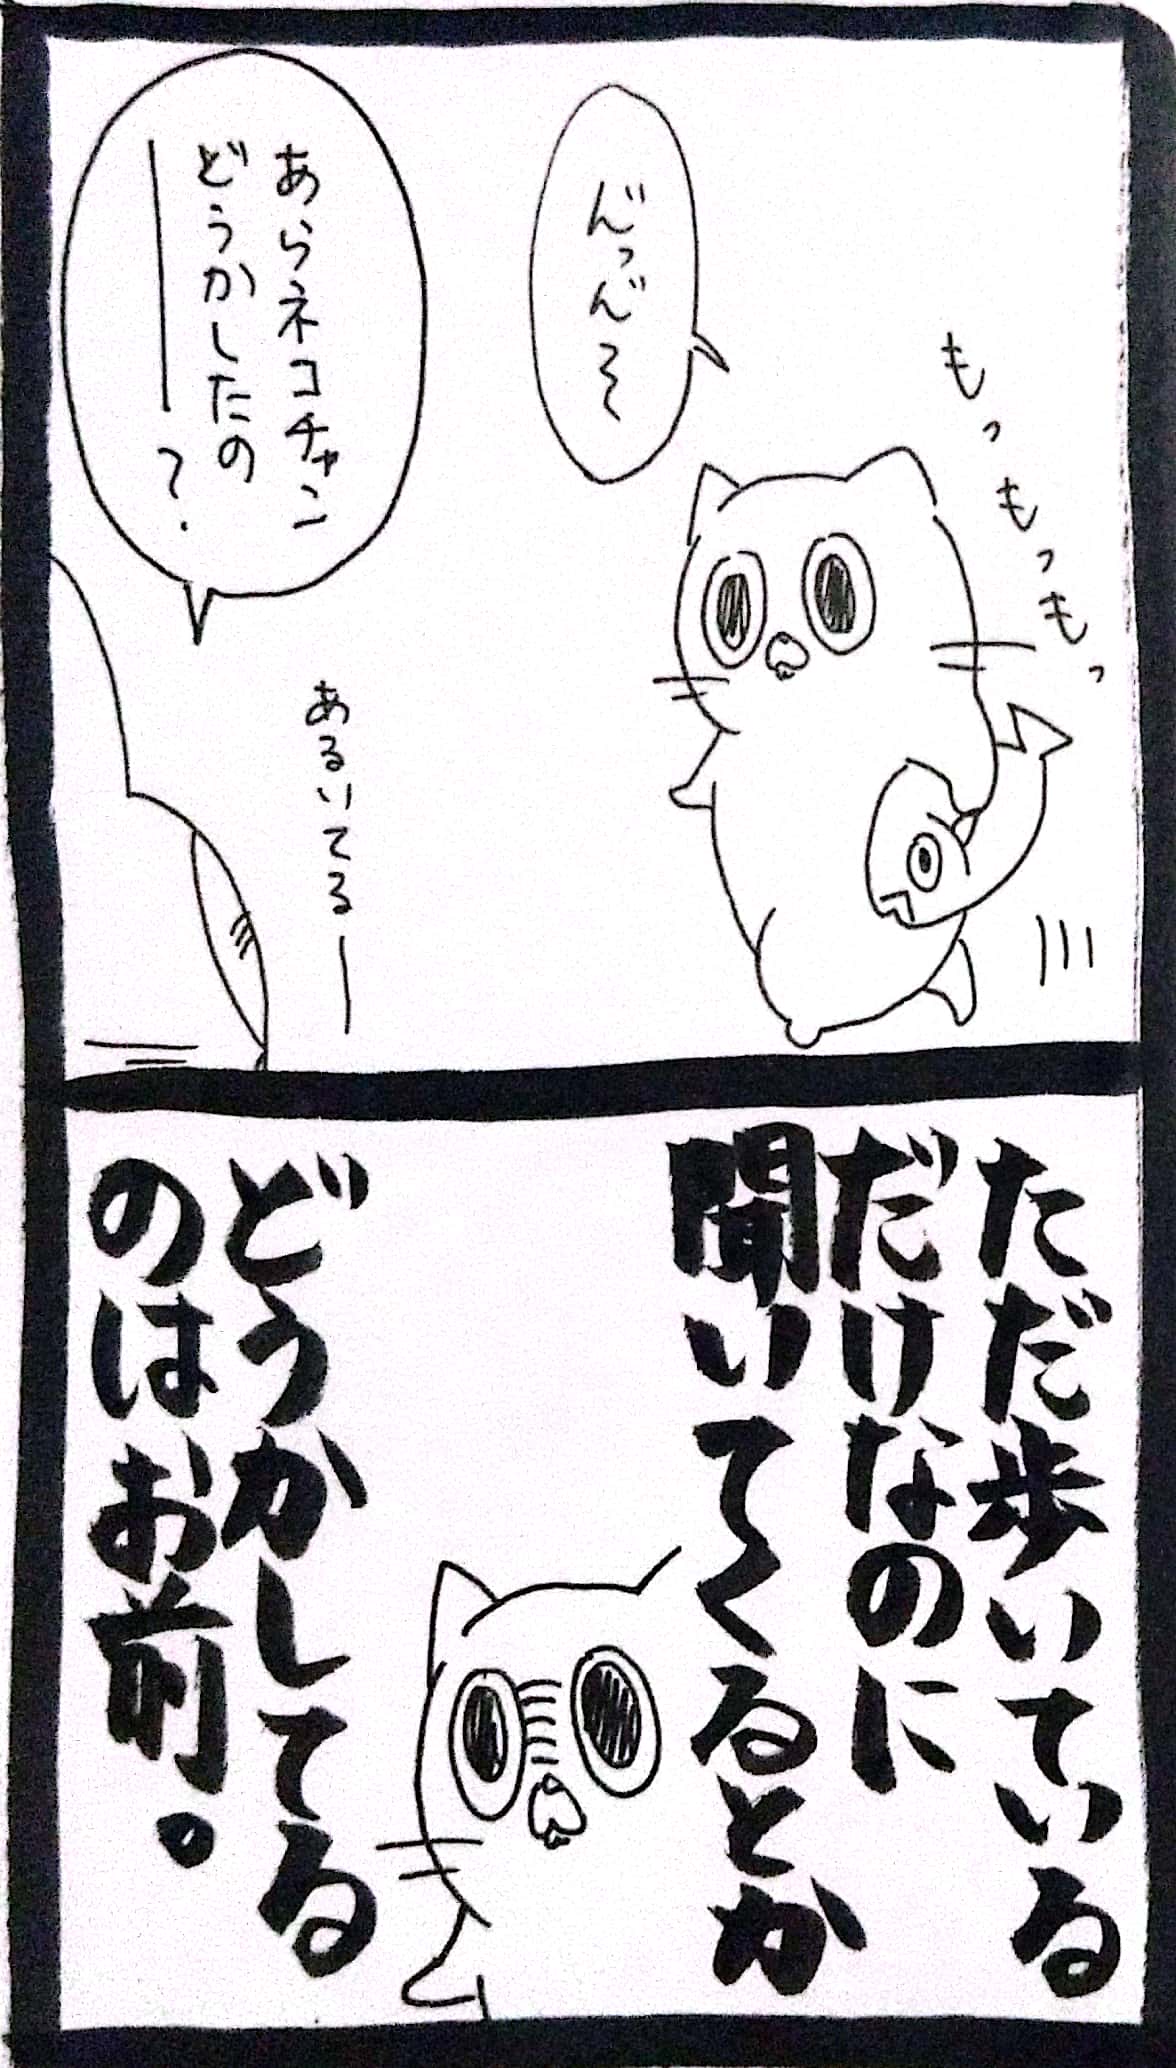 もっもっもっ
ん゛っん゛~
あらネコチャン
どうかしたの
ー?
あるいてるー
ただ歩いている
だけなのに
聞いてくるとか
どうかしてる
のはお前。